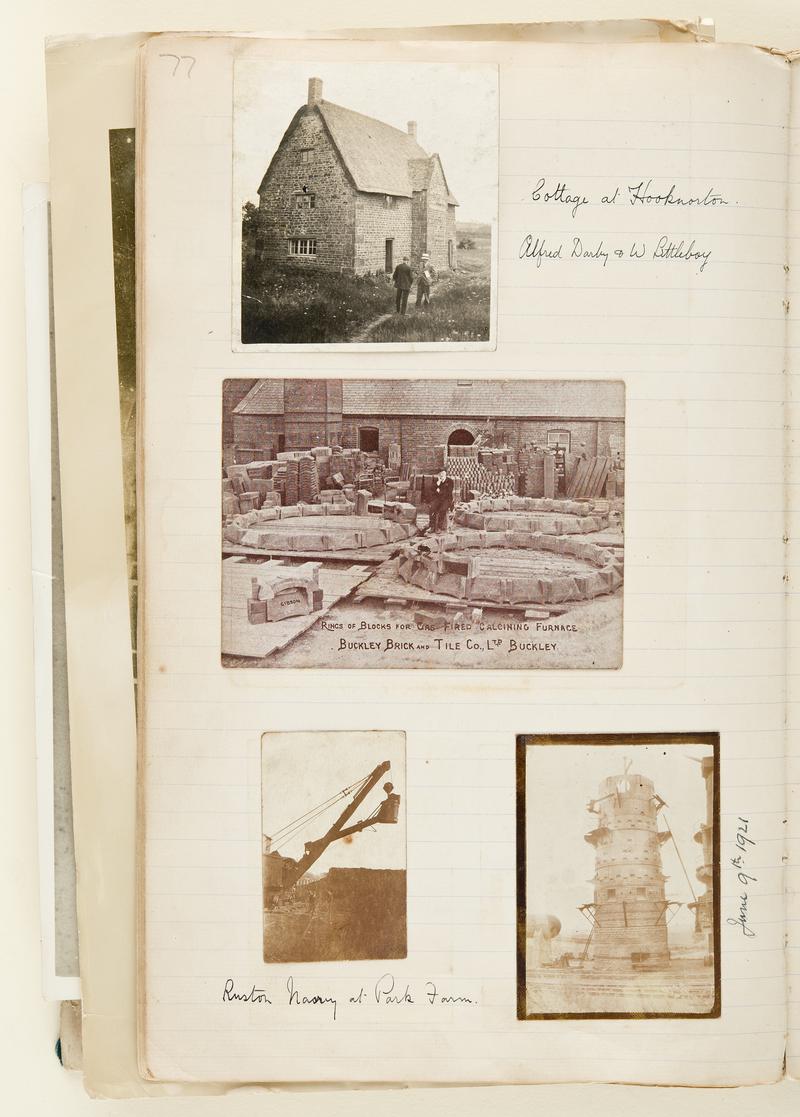 77
Cottage at Hooknorton.
Alfred Darby & W Littleboy
GIBSON
RINGS OF BLOCKS FOR GAS FIRED CALCINING FURNACE
BUCKLEY BRICK AND TILE CO., LTD BUCKLEY
June 9th 1921
Ruston Navvy at Park Farm.